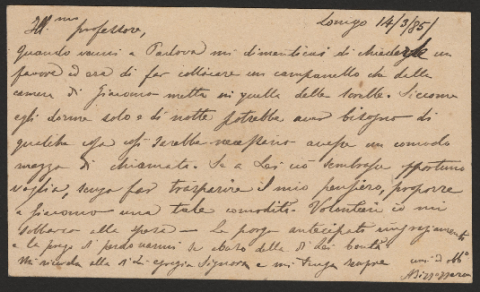 Lonigo 14/3/85
Ill.mo professore,
Quando venni a Padova mi dimenticai di chiederle un
favore ed era di far collocare un campanello che dalla
camera di Giacomo metta in quella delle sorelle. Siccome
egli dorme solo e di notte potrebbe aver bisogno di
qualche cosa così sarebbe necessario avesse un comodo
mezzo di chiamata. Se a Lei ciò sembrasse opportuno
voglia, senza far trasparire il mio pensiero, proporre
a Giacomo una tale comodità. Volentieri io mi
sobbarco alla spesa — La porgo anticipati ringraziamenti
e la prego di perdonarmi se abuso della di Lei bontà.
Mi ricordi alla di Lei egregia Signora e mi tenga sempre